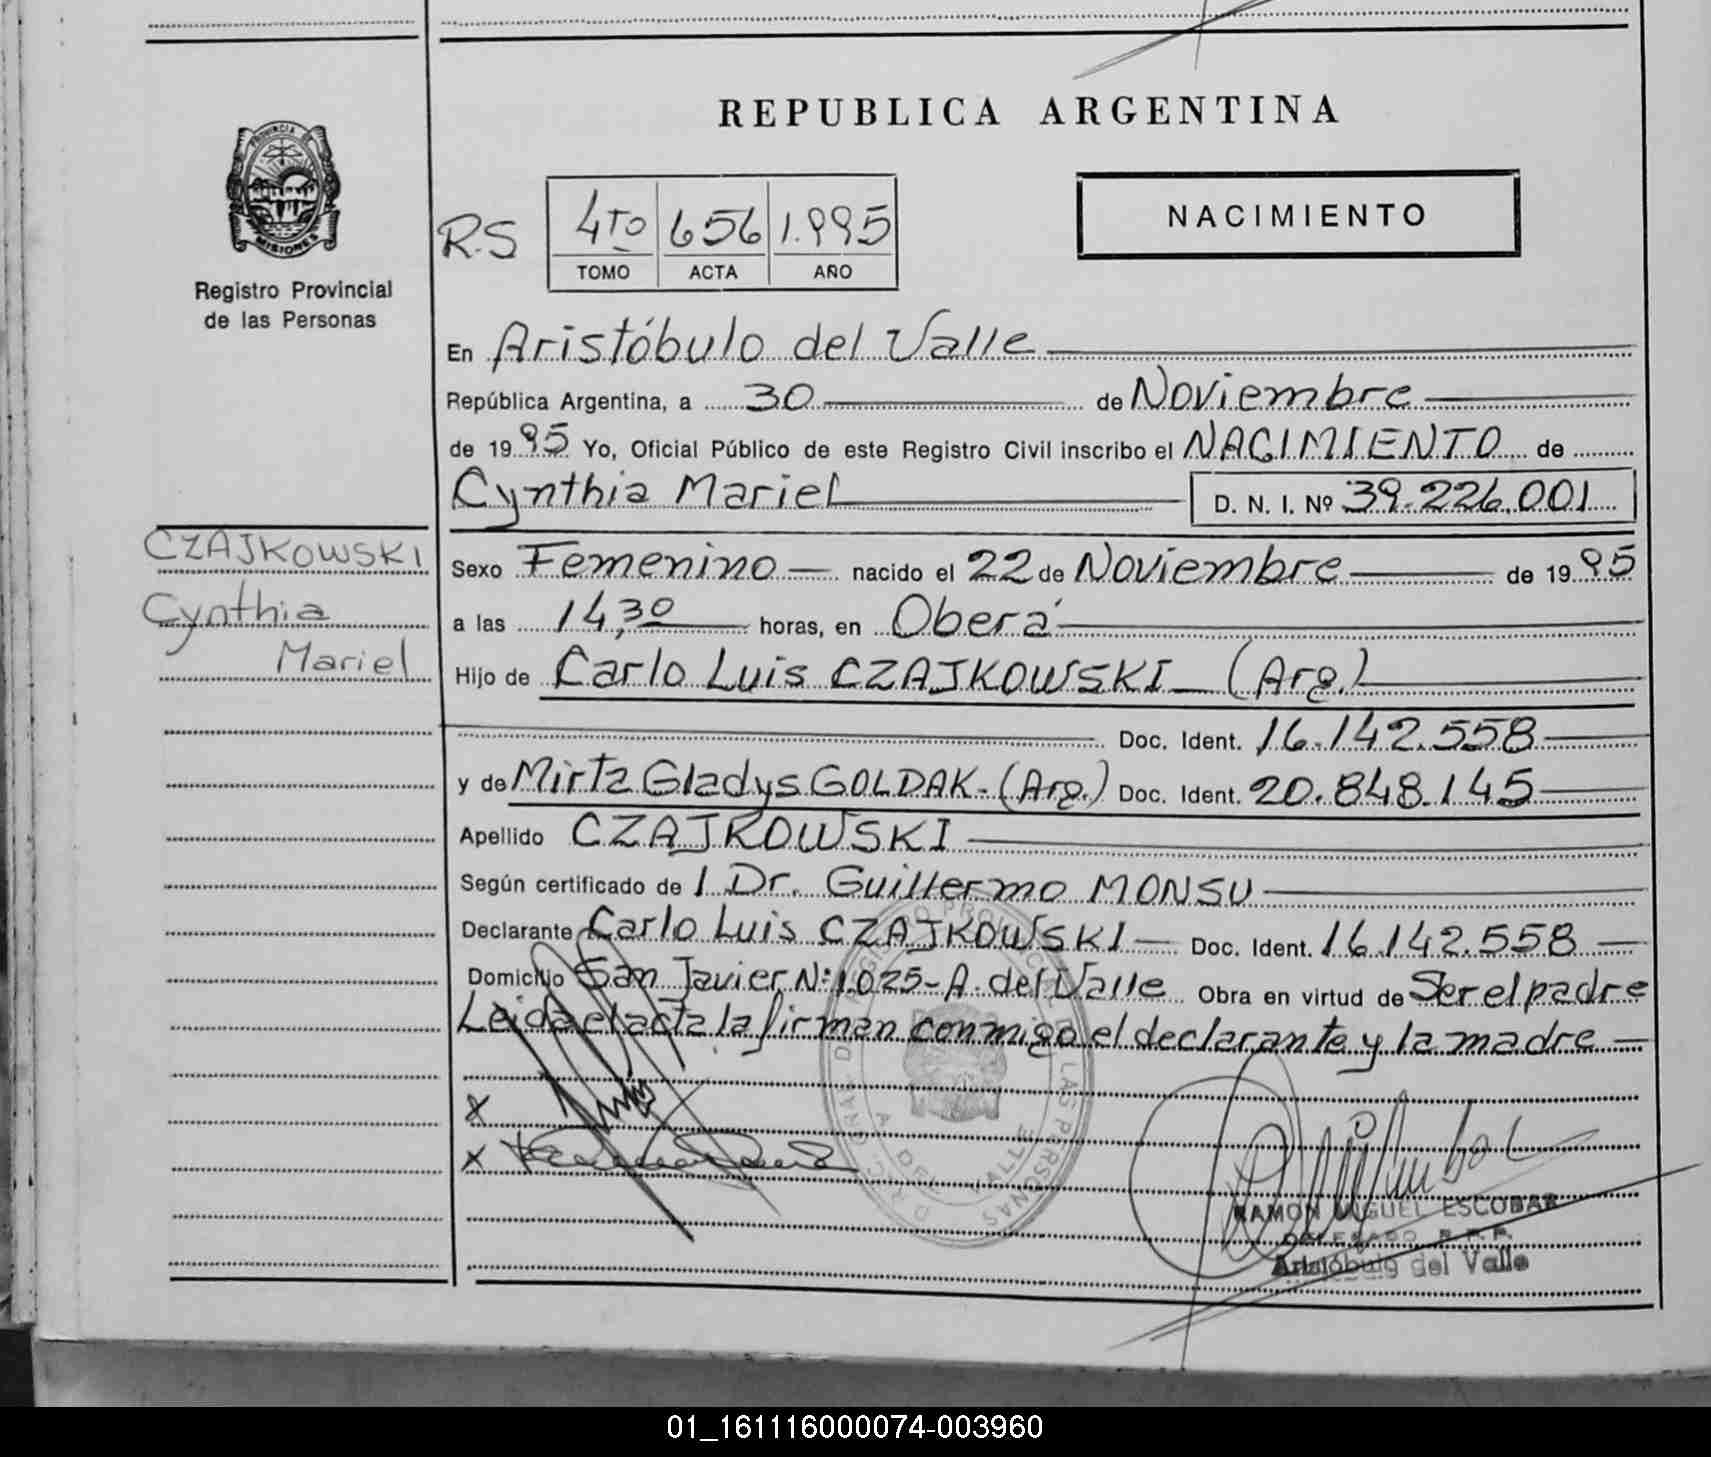 REPUBLICA ARGENTINA
PROVINCIA DE
MISIONES
Registro Provincial
de las Personas
R.S
4TO 656 1.995
TOMO ACTA AÑO
NACIMIENTO
En Aristóbulo del Valle
República Argentina, a 30 de Noviembre
de 1995 Yo, Oficial Público de este Registro Civil inscribo el NACIMIENTO de
Cynthia Mariel D. N. I. Nº 39.226.001
CZAJKOWSKI
Cynthia
Mariel
Sexo Femenino nacido el 22 de Noviembre de 1995
a las 14,30 horas, en Oberá
Hijo de Carlo Luis CZAJKOWSKI (Arg.)
Doc. Ident. 16.142.558
y de Mirta Gladys GOLDAK-(Arg.) Doc. Ident. 20.848.145
Apellido CZAJKOWSKI
Según certificado de l Dr. Guillermo MONSU
Declarante Carlo Luis CZAJKOWSKI Doc. Ident. 16.142.558
Domicilio San Javier Nº 1.025-A. del Valle Obra en virtud de Ser el padre
Leida el acta la firman conmigo el declarante y la madre
x
x
REGISTRO PROVINCIAL DE LAS PERSONAS
A. DEL VALLE
RAMON MIGUEL ESCOBAR
DELEGADO R.P.P.
Aristóbulo del Valle
01_161116000074-003960